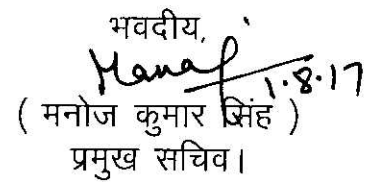 भवदीय,
Manoj 1.8.17
( मनोज कुमार सिंह )
प्रमुख सचिव।